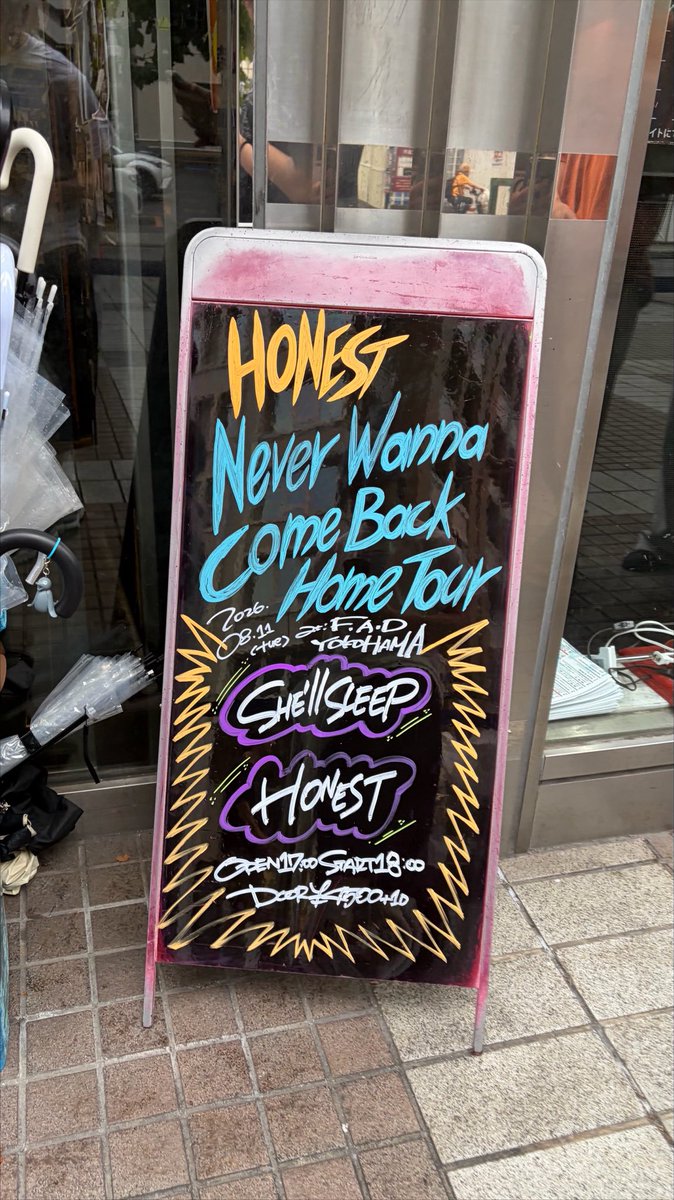 HONEST
Never Wanna
Come Back
Home Tour
2026.
08.11
(TUE) at: F.A.D
YOKOHAMA
SHE'll SLEEP
HONEST
OPEN17:00 START18:00
DOOR ¥4500+1D
イトにて